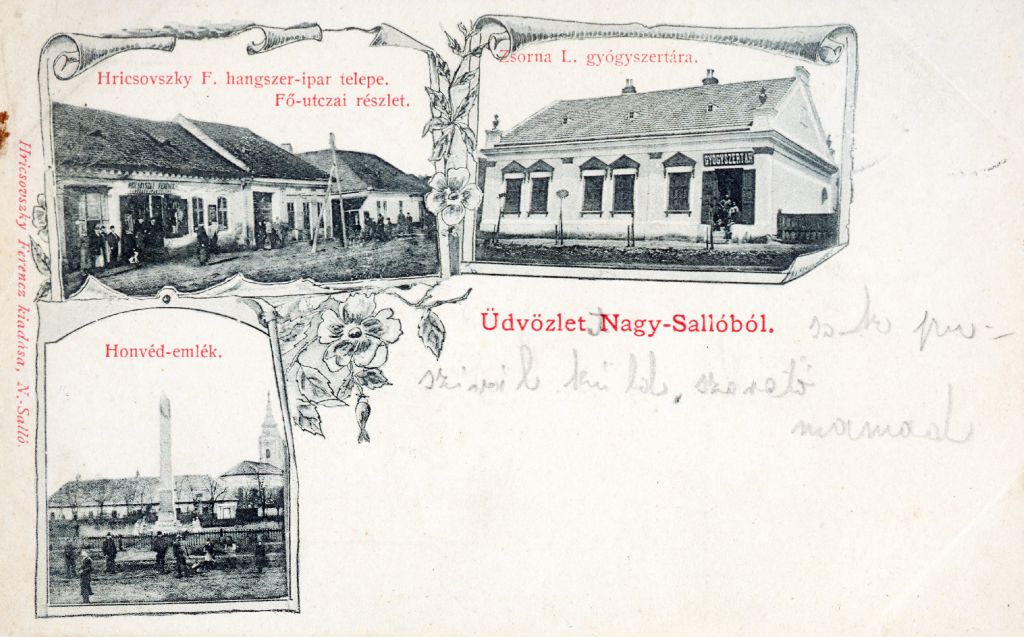 Hricsovszky F. hangszer-ipar telepe.
Fő-utczai részlet.
Zsorna L. gyógyszertára.
GYÓGYSZERTÁR
Honvéd-emlék.
Üdvözlet Nagy-Sallóból.
szivvel küld, szerető
mamád
Hricsovszky Ferencz kiadása, N.-Salló.